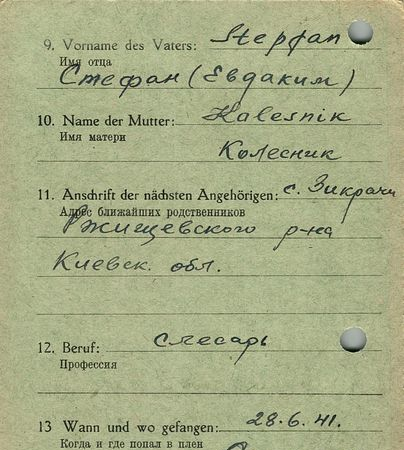 9. Vorname des Vaters: Stepfan
Имя отца
Стефан (Евдаким)
10. Name der Mutter: Kalesnik
Имя матери
Колесник
11. Anschrift der nächsten Angehörigen: с. Зикрачи
Адрес ближайших родственников
Ржищевского р-на
Киевск. обл.
12. Beruf: слесарь
Профессия
13 Wann und wo gefangen: 28.6.41.
Когда и где попал в плен